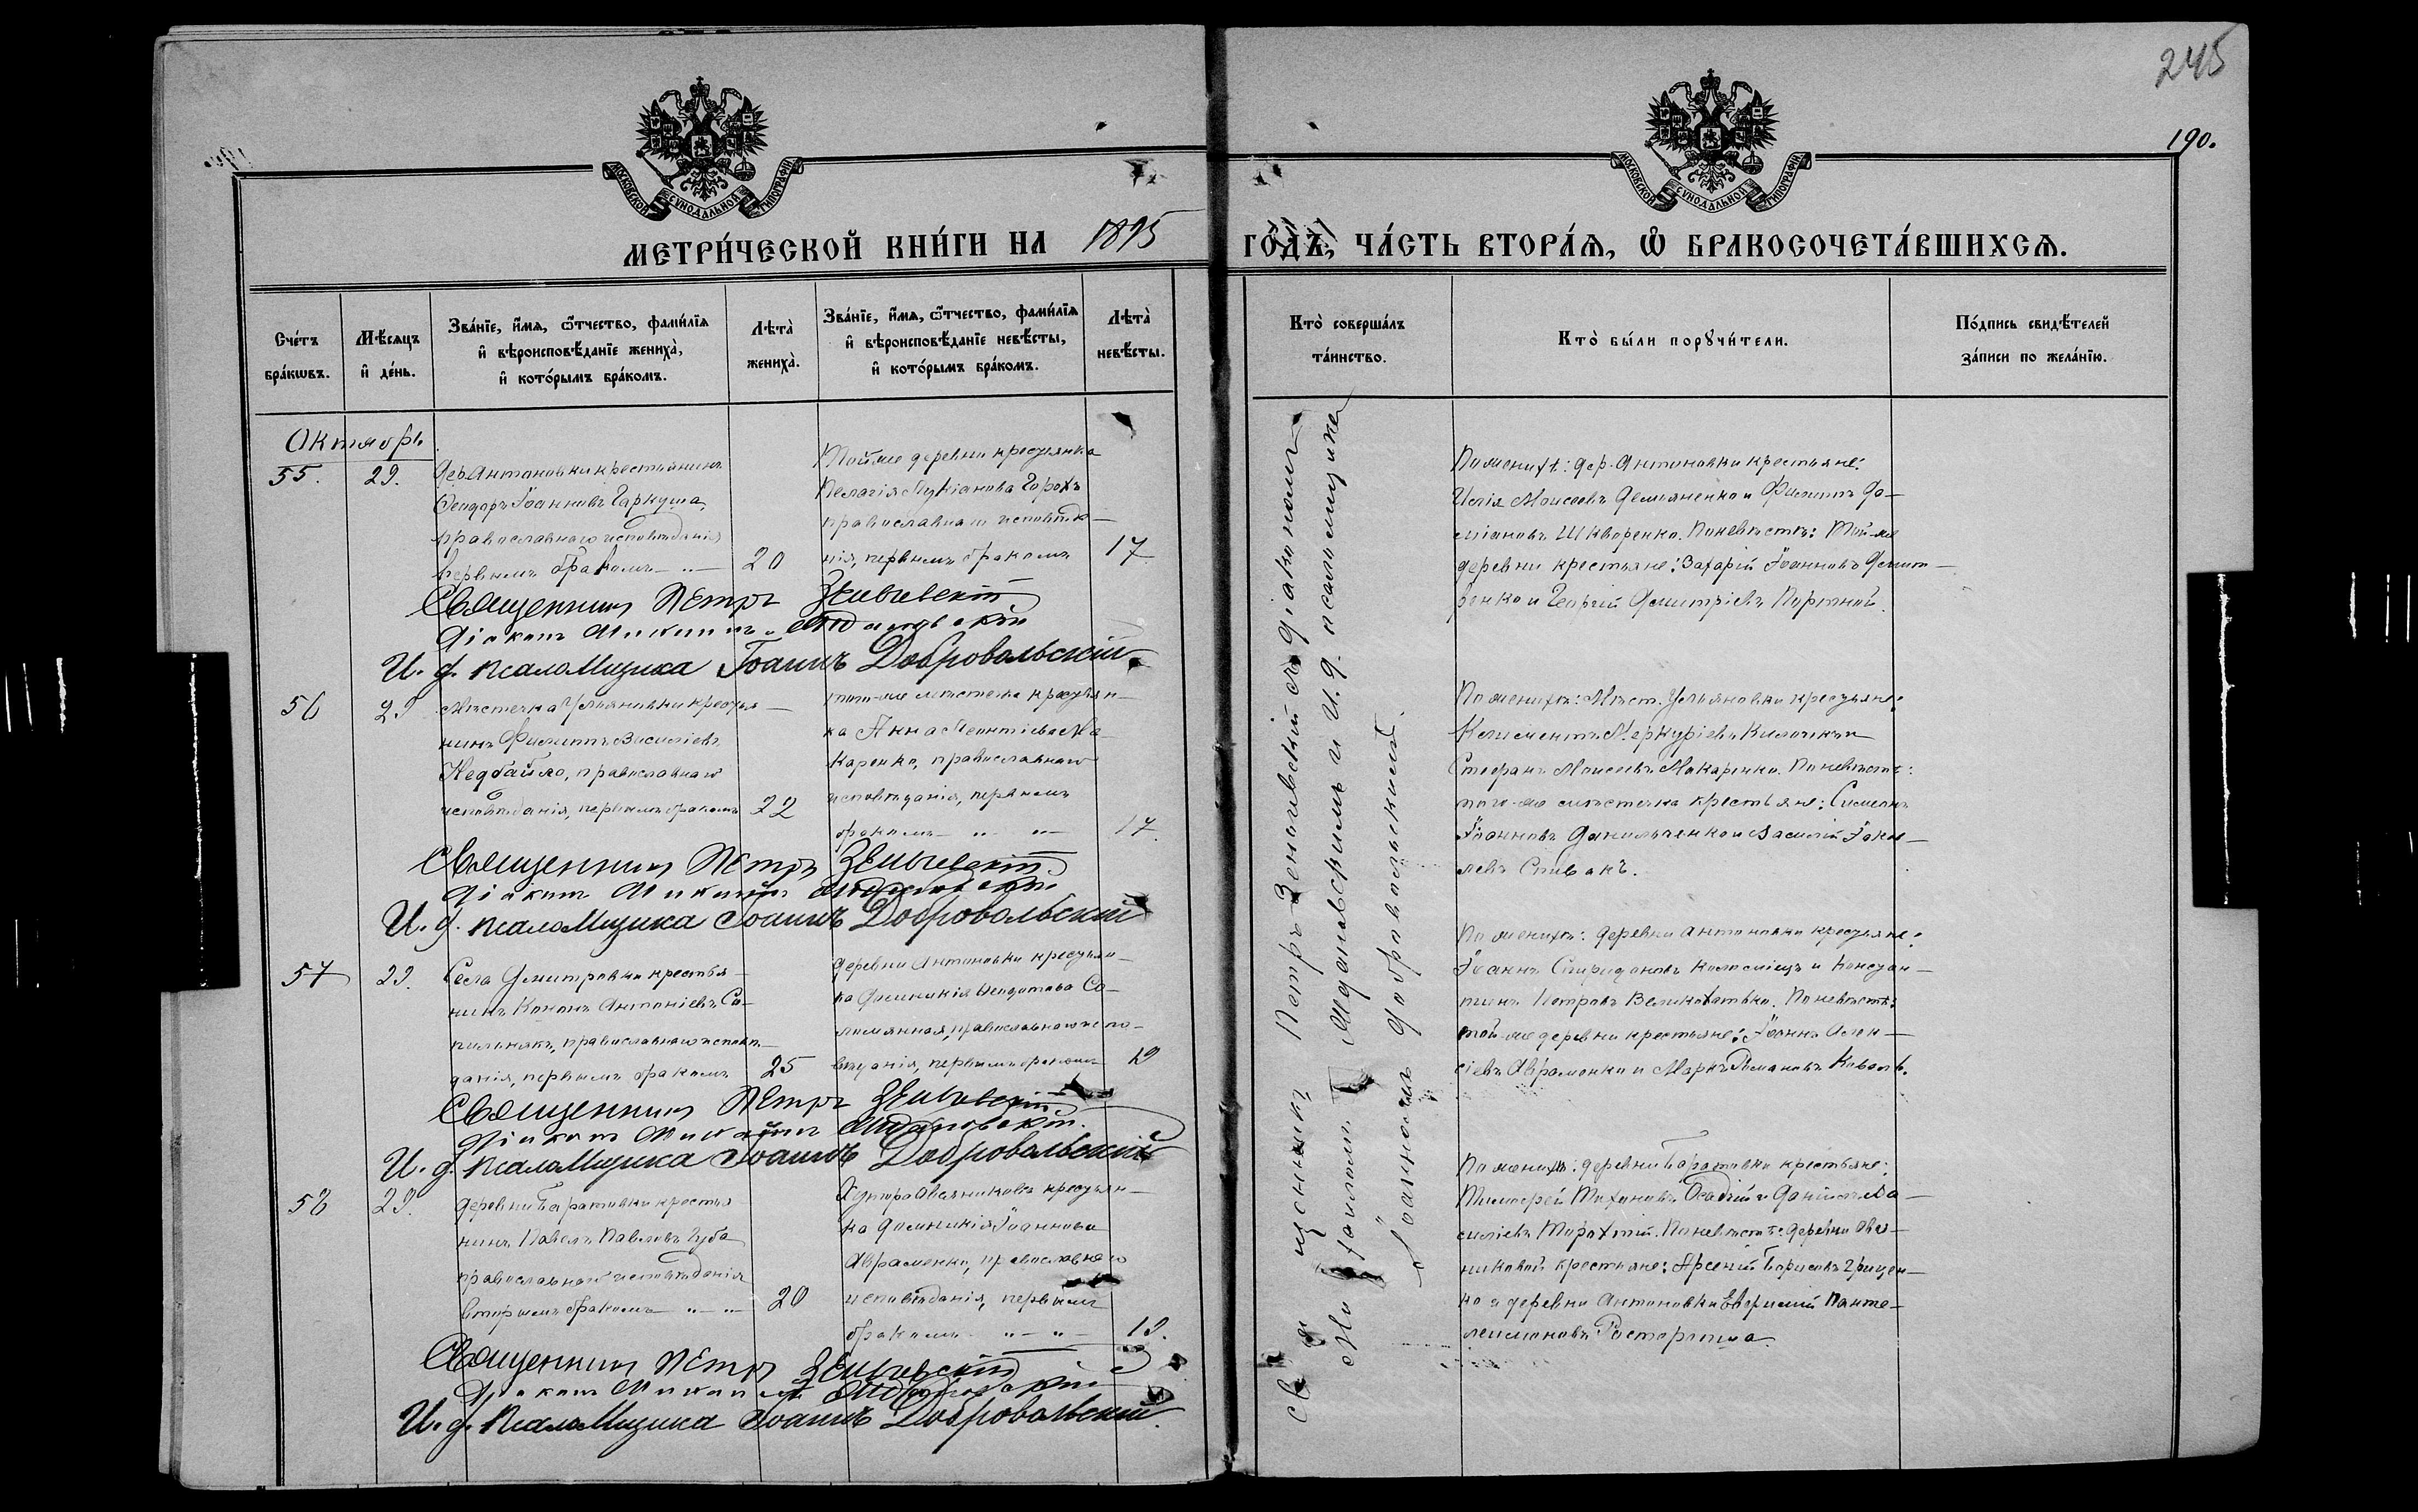 245
190.
МОСКОВСКОЙ СѴНОДАЛЬНОЙ ТИПОГРАФІИ
МОСКОВСКОЙ СѴНОДАЛЬНОЙ ТИПОГРАФІИ
МЕТРИ́ЧЕСКОЙ КНИ́ГИ НА 1895 ГО́ДЪ, ЧА́СТЬ ВТОРА́Ѧ, Ѽ БРАКОСОЧЕТА́ВШИХСѦ.
Сче́тъ бра́кѡвъ.
Мѣ́сѧцъ и҆ де́нь.
Зва́нїе, и҆́мѧ, ѻ҆́тчество, фами́лїѧ
и҆ вѣроисповѣ́данїе жениха̀,
и҆ кото́рымъ бра́комъ.
Лѣта̀ жениха̀.
Зва́нїе, и҆́мѧ, ѻ҆́тчество, фами́лїѧ
и҆ вѣроисповѣ́данїе невѣ́сты,
и҆ кото́рымъ бра́комъ.
Лѣта̀ невѣ́сты.
Кто̀ соверша́лъ та́инство.
Кто̀ бы́ли порꙋчи́тели.
По́дпись свидѣ́телей
за́писи по жела́нїю.
Октябрь
55.
29.
Дер. Антоновки крестьянинъ
Ѳеодоръ Іоанновъ Гаркуша,
православнаго исповѣданія
первымъ бракомъ
20
Той-же деревни крестьянка
Пелагія Лукіанова Горохъ
православнаго исповѣда-
нія, первымъ бракомъ
17
По женихѣ: дер. Антоновки крестьяне:
Илія Моисеевъ Демьяненко и Филиппъ До-
міановъ Шкваренко. По невѣстѣ: Той-же
деревни крестьяне: Захарій Іоанновъ Демит-
ренко и Георгій Димитріевъ Портной.
Священникъ Петръ
Діаконъ
И. д. псаломщика Іоаннъ Добровольскій
56
29
Мѣстечка Ульяновки крестья-
нинъ Филиппъ Василіевъ
Недбайло, православнаго
исповѣданія, первымъ бракомъ
22
того-же мѣстечка крестьян-
ка Анна Леонтіева Ма-
каренко, православнаго
исповѣданія, первымъ
бракомъ
17.
По женихѣ: Мѣст. Ульяновки крестьяне:
Климентъ Меркуріевъ
Стефанъ Моисеевъ Макаренко. По невѣстѣ:
того-же мѣстечка крестьяне: Симеонъ
Іоанновъ Данильченко и Василій Іаков-
левъ Спивакъ.
Священникъ Петръ
Діаконъ
И. д. псаломщика Іоаннъ Добровольскій
57
29.
Села Дмитровки крестья-
нинъ Кононъ Антоніевъ Са-
пильнякъ, православнаго исповѣ-
данія, первымъ бракомъ
25
деревни Антоновки крестьян-
ка Домникія Ѳеодотова Со-
ломянная, православнаго испо-
вѣданія, первымъ бракомъ
19
По женихѣ: деревни Антоновки крестьяне:
Іоаннъ Спиридоновъ Коломіецъ и Констан-
тинъ Петровъ По невѣстѣ:
той-же деревни крестьяне: Іоаннъ
Авраменко и Маркъ Романовъ Коваль.
Священникъ Петръ
Діаконъ
И. д. псаломщика Іоаннъ Добровольскій
58
29.
деревни Баратовки крестья
нинъ Павелъ Павловъ Губа
православнаго исповѣданія
вторымъ бракомъ
20
Хутора Овсянникова крестьян-
ка Домникія Іоаннова
Авраменко, православнаго
исповѣданія, первымъ
бракомъ
19.
По женихѣ: деревни Баратовки крестьяне:
Тимоѳей Осадчій и Даніилъ Ва-
силіевъ По невѣстѣ: деревни Овся-
никовой крестьяне: Арсеній Борисовъ Грицен-
ко и деревни Антоновки Евфимій Панте-
леимоновъ Расторгуша.
Священникъ Петръ
Діаконъ
И. д. псаломщика Іоаннъ Добровольскій
Священникъ Петръ съ діакономъ
и И. д. псаломщика
Іоанномъ Добровольскимъ.